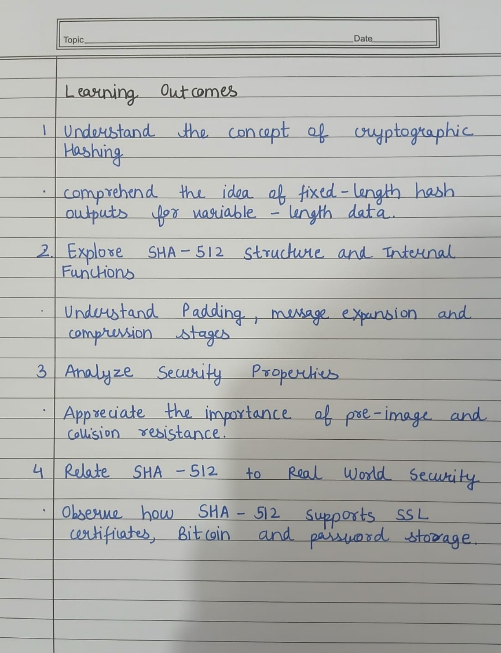 Topic Date
Learning Outcomes
1 Understand the concept of cryptographic
Hashing
· comprehend the idea of fixed-length hash
outputs for variable - length data.
2. Explore SHA-512 Structure and Internal
Functions
· Understand Padding, message expansion and
compression stages
3 Analyze Security Properties
· Appreciate the importance of pre-image and
collision resistance.
4 Relate SHA-512 to Real World Security
· Observe how SHA-512 supports SSL
certificates, Bitcoin and password storage.